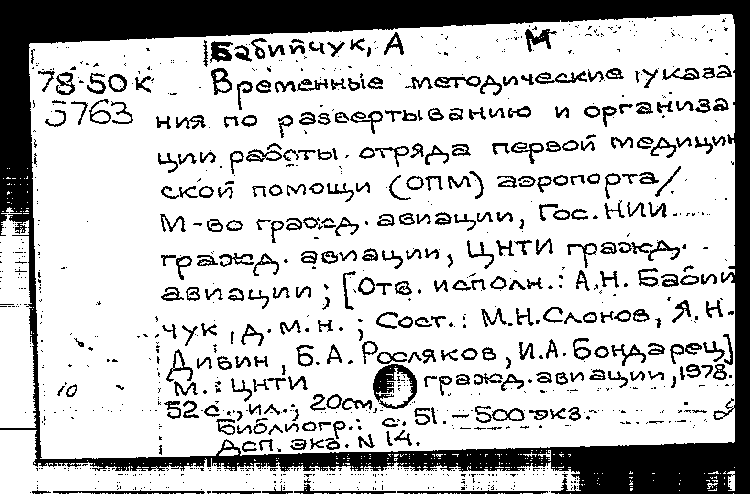 Бабийчук, А М
78-50к Временные методические указа
5763 ния по развертыванию и организа
ции работы отряда первой медицин
ской помощи (ОПМ) аэропорта/
М-во гражд. авиации, Гос. НИИ
гражд. авиации, ЦНТИ гражд.
авиации; [Отв. исполн.: А.Н. Бабий
чук, д.м.н.; Сост.: М.Н. Слонов, Я.Н.
Дивин, Б.А. Росляков, И.А. Бондарец]
10 М.: ЦНТИ гражд. авиации, 1978.
52 с., ил.; 20см.
Библиогр.: с. 51. – 500 экз.
Дсп. экз. N 14.